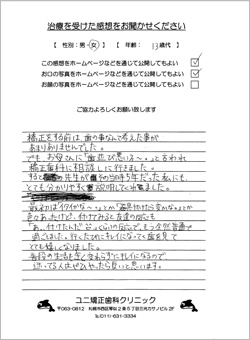 治療を受けた感想をお聞かせください
【 性別：男・女 】 【 年齢： 13歳代 】
この感想をホームページなどを通じて公開してもよい
お口の写真をホームページなどを通じて公開してもよい
お顔の写真をホームページなどを通じて公開してもよい
ご協力よろしくお願い致します
矯正をする前は、歯の事なんて考えた事が
あまりありませんでした。
でも、お母さんに「歯並び悪いよ〜。」と言われ
矯正歯科に相談しに行きました。
すると 先生が その当時5年だった私にも、
とても分かりやすく説明してくれました。
最初は「イタイかな〜。」とか「器具付けたら変かな。」とか
色々あったけど、付けてみると友達の反応も
「あ、付けたんだ」くらいの反応で、もう全然普通に
過ごしました。行くたびにキレイになってく歯を見て
とても嬉しくなりました。
普段の生活を全く変えずにキレイになるので
迷ってる人はぜひやったら良いと思います。
ユニ矯正歯科クリニック
〒063-0812 札幌市西区琴似2条5丁目三光カサノビル2F
℡(011)-631-3334